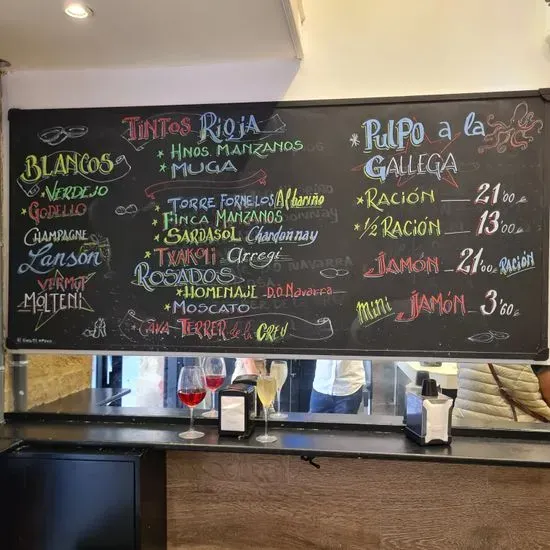 BLANCOS
VERDEJO
GODELLO
CHAMPAGNE
Lansón
VERMUT
MOLTENI
TINTOS RIOJA
* HNOS. MANZANOS
* MUGA
* TORRE FORNELOS Albariño
* FINCA MANZANOS
* SARDASOL Chardonnay
* TXAKOLI Arregi
ROSADOS
* HOMENAJE D.O. Navarra
* MOSCATO
* CAVA TERRER de la CREU
* PULPO a la
GALLEGA
* RACIÓN 21'00€
* 1/2 RACIÓN 13'00€
JAMÓN 21'00€ RACIÓN
mini JAMÓN 3'60€